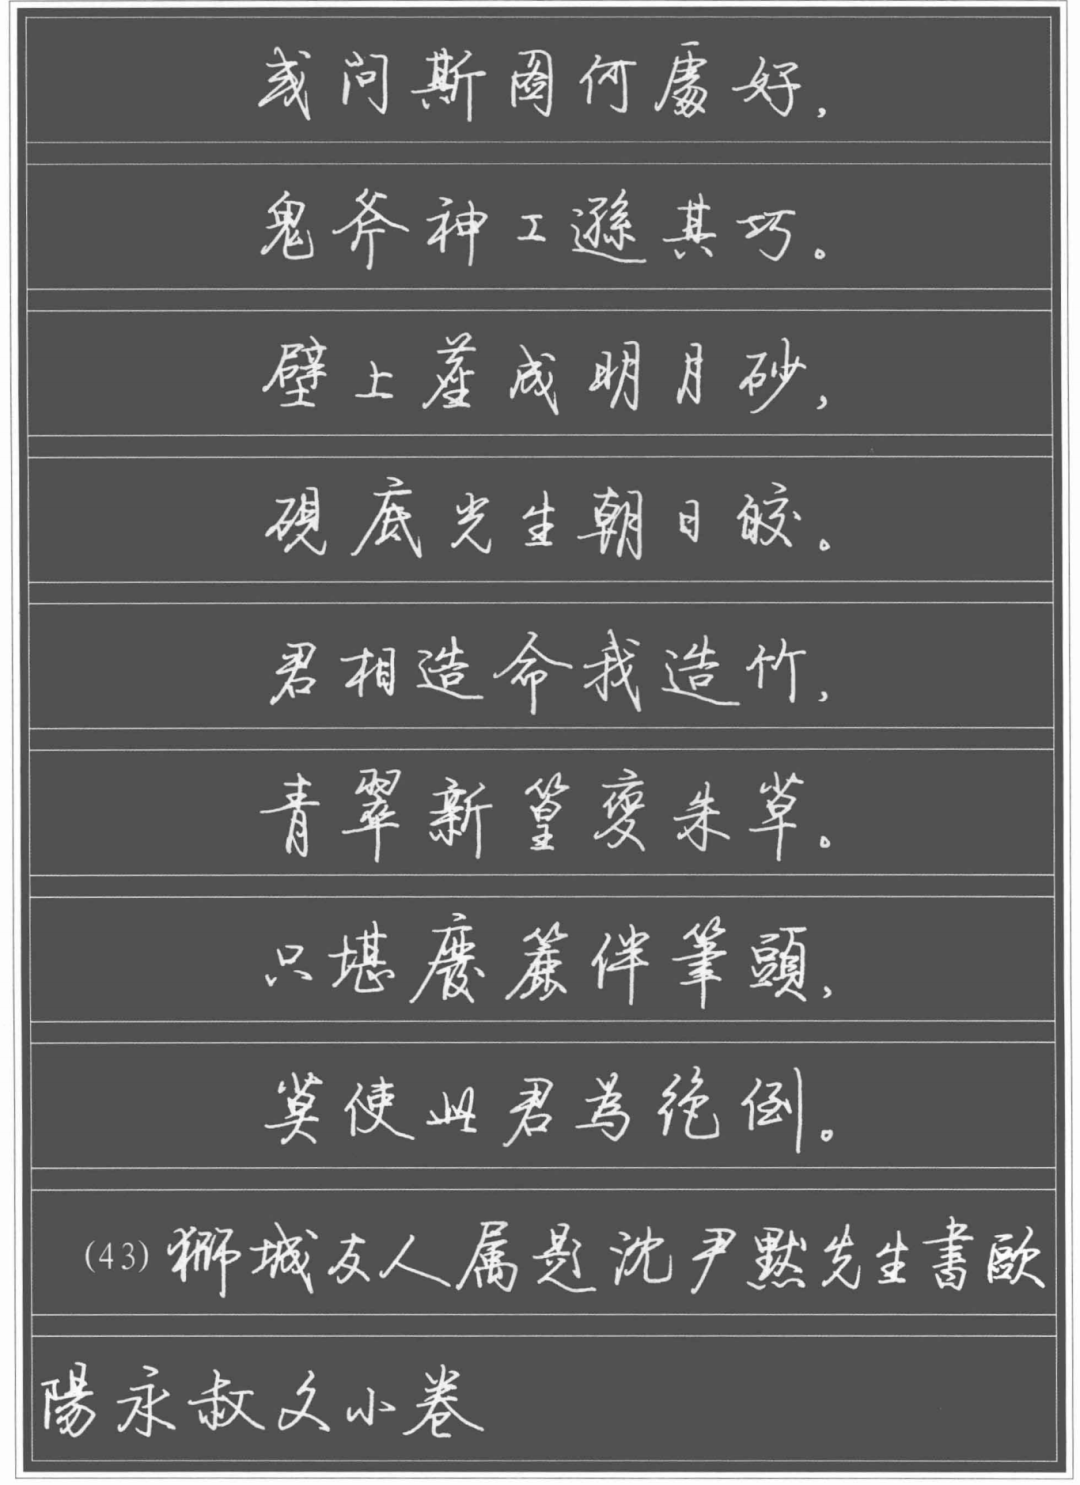 或問斯圖何處好,
鬼斧神工遜其巧。
壁上成明月砂,
硯底光生朝日皎。
君相造命我造竹,
青翠新篁變朱草。
只堪廢簏伴筆頭,
莫使此君為絶倒。
(43) 獅城友人属題沈尹默先生書歐
陽永叔文小卷